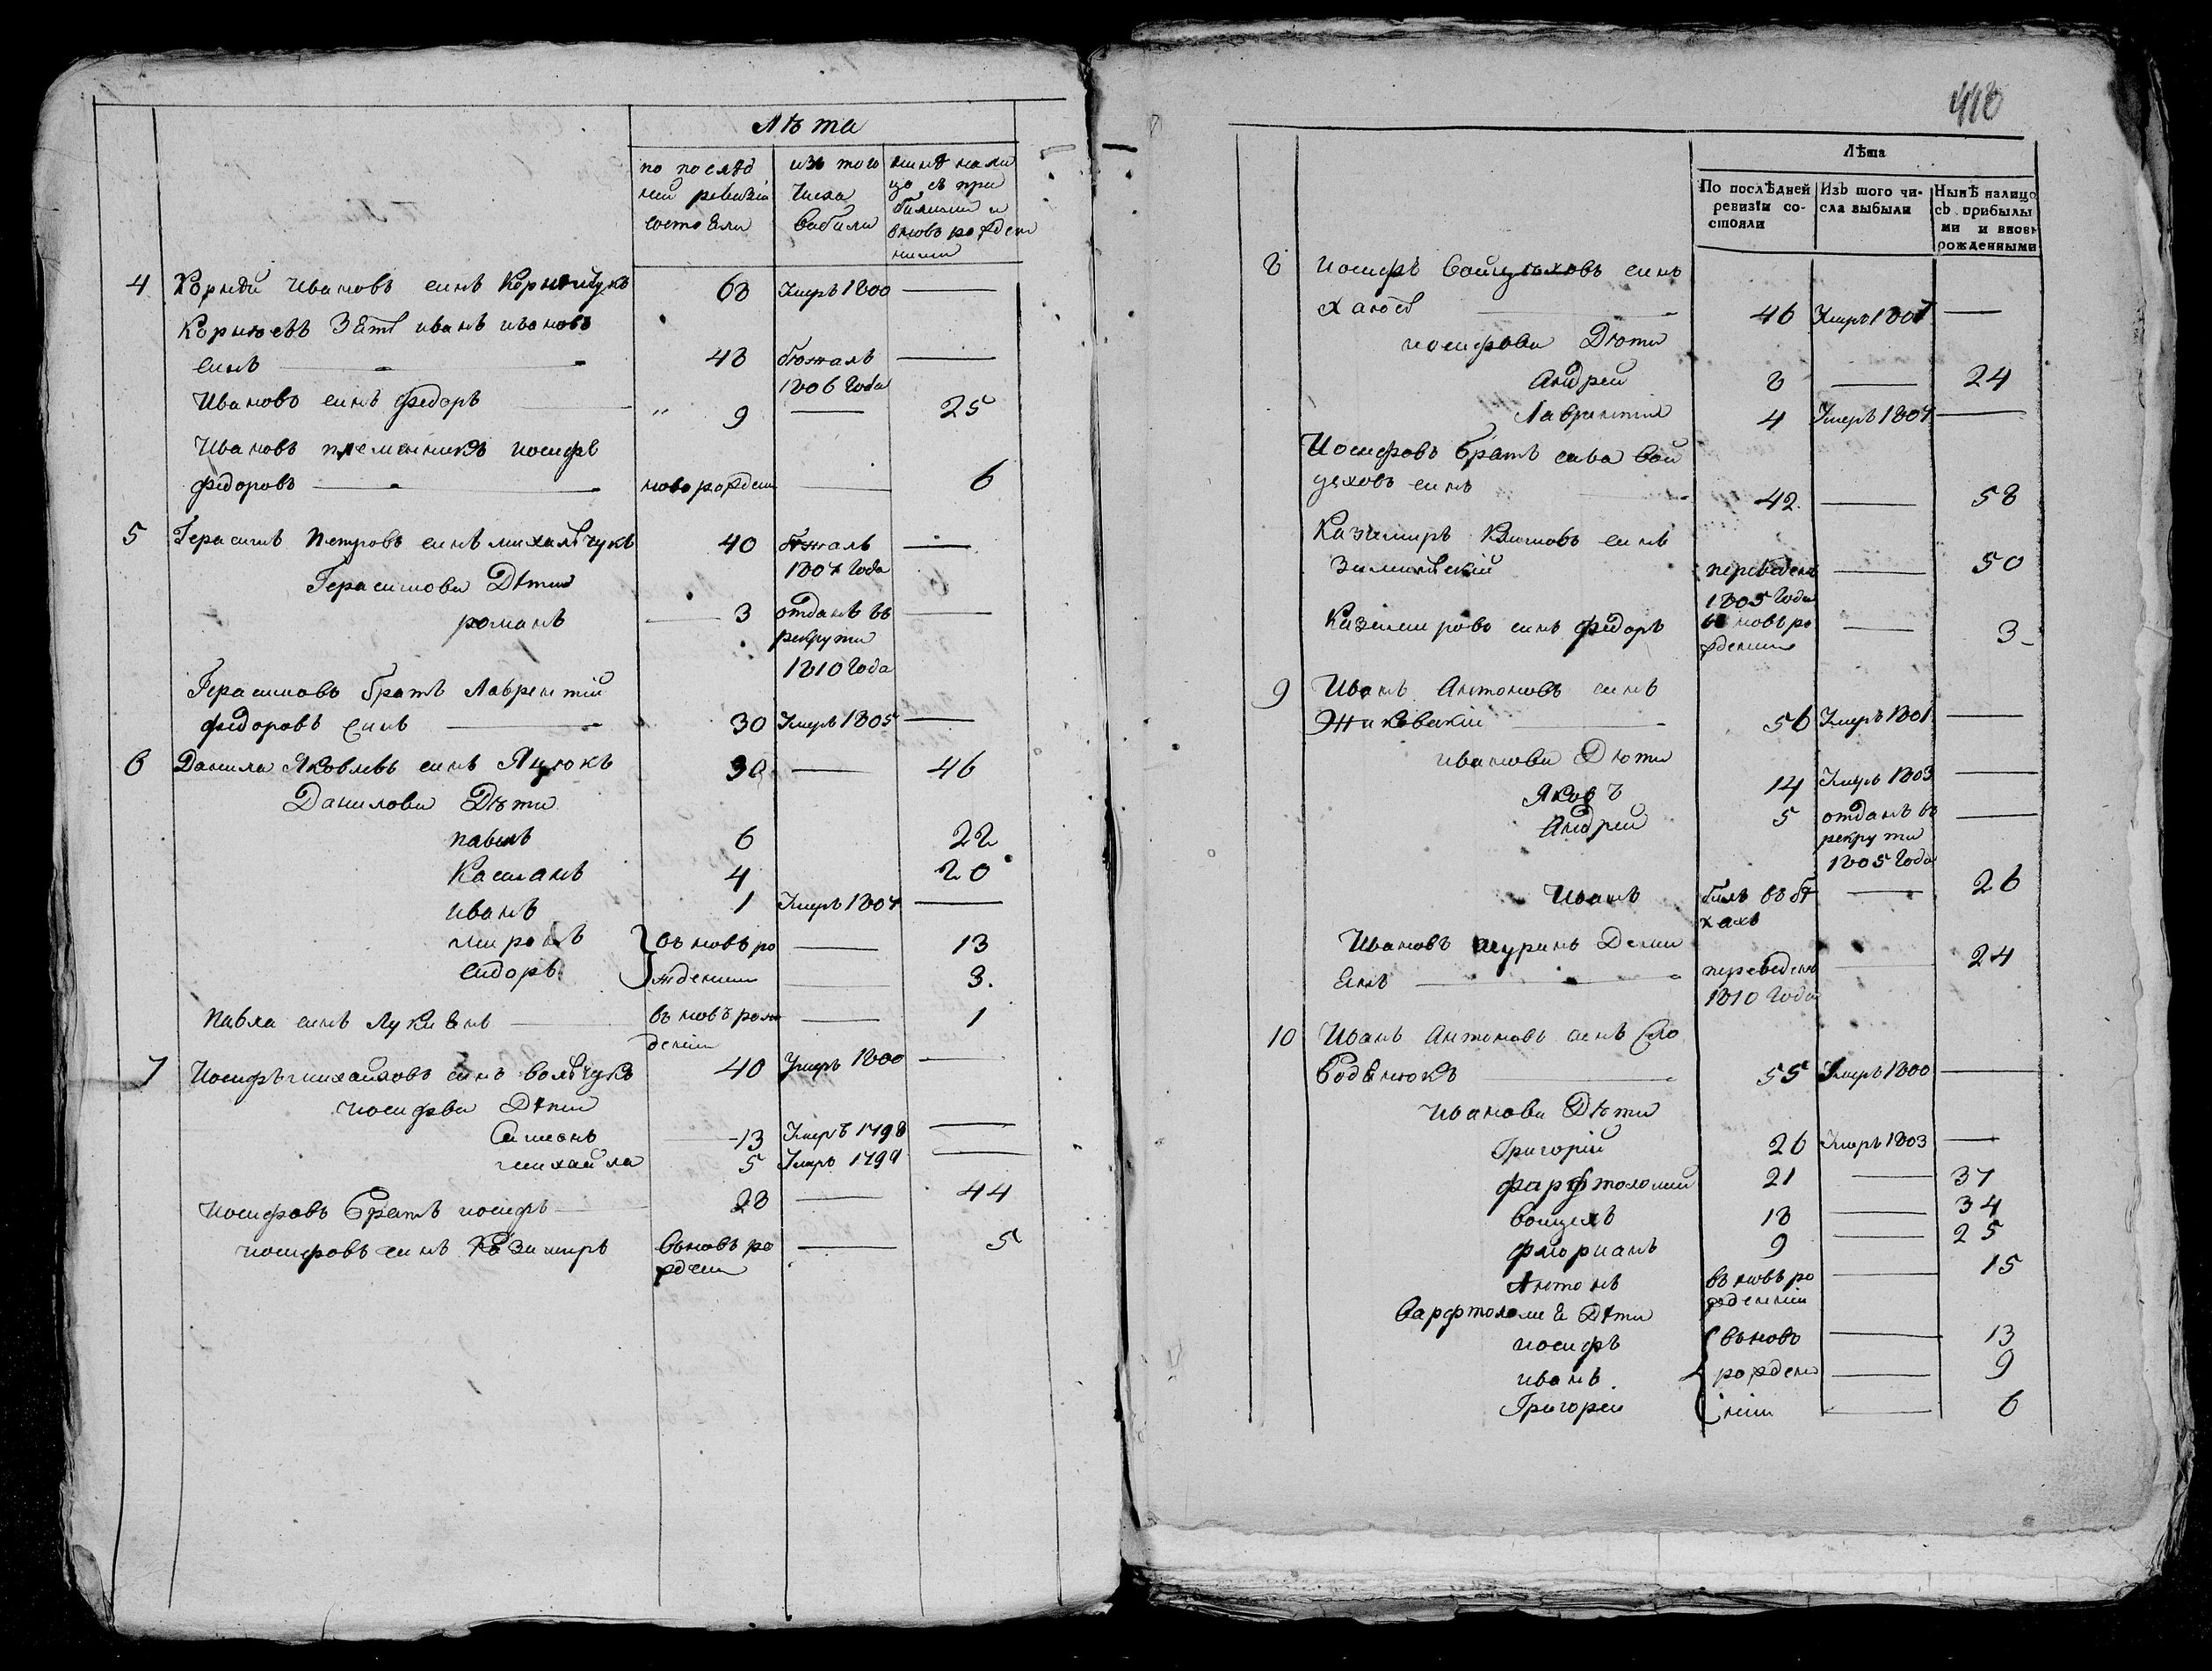 Лѣта
по послѣд
ней ревизіи
состояли
изъ того
числа
выбыли
нинѣ нали
цо съ при
билими и
вновь рожден
ними
4 Корнѣй Ивановъ синъ Корнѣйчукъ 68 Умеръ 1800 —
Корнѣевъ Зять иванъ ивановъ
синъ — 48 бѣжалъ —
1806 Года
Ивановъ синъ федоръ — " 9 — 25
Ивановъ племенникъ иосифъ
федоровъ — новорожден — 6
5 Герасимъ Петровъ синъ михальчукъ 40 бѣжалъ —
1807 Года
Герасимови Дѣти
романъ — 3 отданъ въ —
рекрути
1810 Года
Герасимовъ братъ Лаврентій
федоровъ Синъ — 30 Умеръ 1805 —
6 Данила Яковлевъ синъ Яцюкъ 30 — 46
Данилови Дѣти
павелъ 6 22
Касianъ 4 20
иванъ 1 Умеръ 1807 —
миронъ } въновь ро — 13
сидоръ } жденни — 3.
Павла синъ Лукиянъ — въновь рож — 1
деніи
7 Иосифъ михайловъ синъ вольчукъ 40 Умеръ 1800 —
иосифови Дѣти
Симонъ — 13 Умеръ 1798 —
михайла 5 Умеръ 1799 —
Иосифовъ Братъ иосифъ — 28 — 44
иосифовъ синъ Казимиръ въновь ро — 5
жден
418
Лѣта
По послѣдней
ревизіи со-
стояли
Изъ того чи-
сла выбыли
Нынѣ налицо
съ прибылы
ми и вновь
рожденными
8 Иосифъ Войцѣховъ синъ
— 46 Умеръ 1807 —
иосифови Дѣти
Андрей 8 — 24
Лаврентій 4 Умеръ 1807 —
Иосифовъ братъ сава Вой
цѣховъ синъ — 42. — 58
Казимиръ синъ
Зилинскій переведенъ — 50
1805 Года
Казимировъ синъ федоръ вновь ро — 3
жденни
9 Иванъ Антоновъ синъ
Жиковскій — 56 Умеръ 1801 —
иванови Дѣти
Яковъ 14 Умеръ 1803 —
Андрей 5 отданъ въ —
рекрути
1805 Года
Иванъ билъ въ бѣ — 26
гахъ
Ивановъ шуринъ
синъ — переведенъ — 24
1810 Года
10 Иванъ Антоновъ синъ Сло
бодянюкъ — 55 Умеръ 1800 —
Иванови Дѣти
Григорій 26 Умеръ 1803 —
фарфтоломій 21 — 37
Войцехъ 18 — 34
флориянъ 9 — 25
Антонъ въновь ро — 15
жденній
Варфтоломея Дѣти
иосифъ { въновь — 13
иванъ { рожден — 9
Григорей { ніи — 6